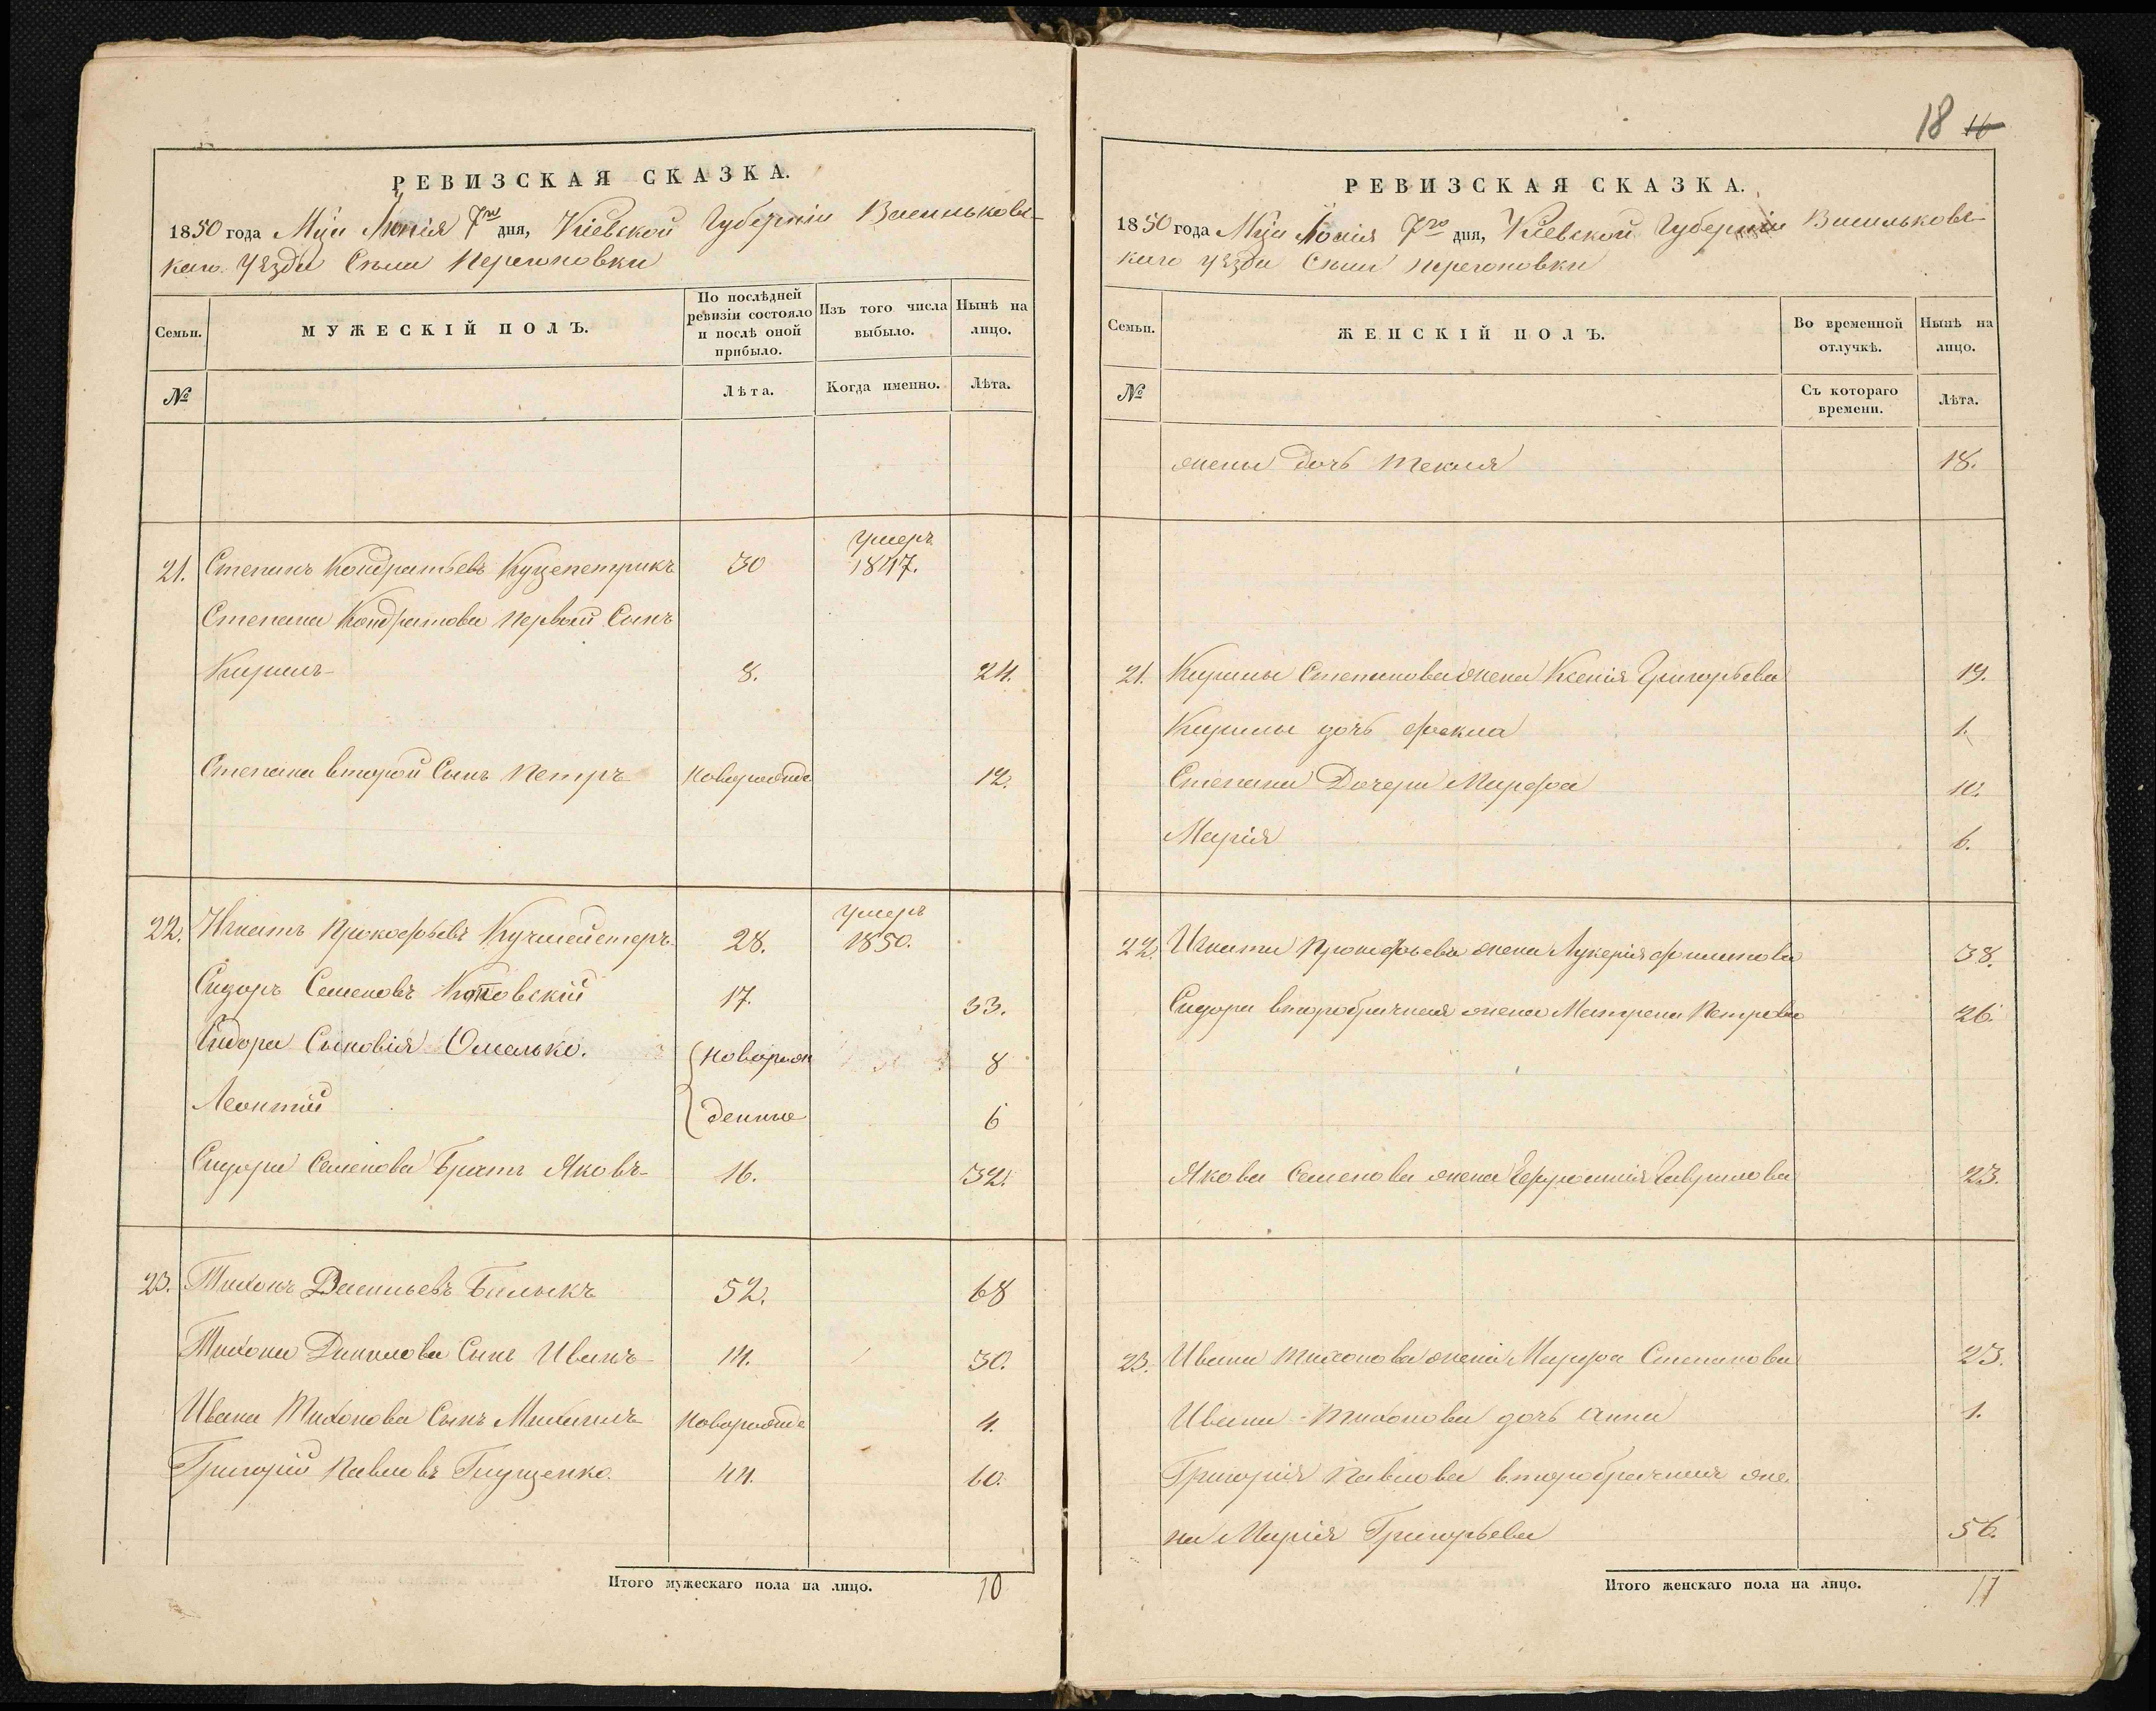 РЕВИЗСКАЯ СКАЗКА.
1850 года Мця Іюнія 7го дня, Кіевской Губерніи Васильковс-
каго Уѣзда Села Перегоновки
Семьи.
МУЖЕСКІЙ ПОЛЪ.
По послѣдней ревизіи состояло и послѣ оной прибыло.
Изъ того числа выбыло.
Нынѣ на лицо.
№
Лѣта.
Когда именно.
Лѣта.
умеръ
21. Степанъ Кондратьевъ Куцепетрикъ 30 1847.
Степана Кондратова первый Сынъ
Кирилъ 8. 24.
Степана второй Сынъ Петръ новорожде 12.
умеръ
22. Игнатъ Прокофьевъ Кучмейстеръ 28. 1850.
Сидоръ Семеновъ Котовскій 17. 33.
Сидора Сыновія Омелько. новорож 8
Леонтій денные 6
Сидора Семенова Братъ Яковъ 16. 32.
23. Тихонъ Васильевъ Билыкъ 52. 68
Тихона Данилова Сынъ Иванъ 14. 30.
Ивана Тихонова Сынъ Михаилъ новорожде 4.
Григорій Павловъ Глущенко. 44. 60.
Итого мужескаго пола на лицо. 10
18 16
РЕВИЗСКАЯ СКАЗКА.
1850 года Мця Іюнія 7го дня, Кіевской Губерніи Васильковс-
каго уѣзда Села перегоновки
Семьи.
ЖЕНСКІЙ ПОЛЪ.
Во временной отлучкѣ.
Нынѣ на лицо.
№
Съ котораго времени.
Лѣта.
жены дочь Текля 18.
21. Кирилы Степанова жена Ксенія Григорьева 19.
Кирилы дочь Фекла 1.
Степана Дочери Марфа 10.
Марія 6.
22. Игната Прокофьева жена Лукерія Филипова 38.
Сидора второбрачная жена Матрена Петрова 26.
Якова Семенова жена Ефросинія Гаврилова 23.
23. Ивана Тихонова жена Марфа Степанова 23.
Ивана Тихонова дочь Анна 1.
Григорія Павлова второбрачная же-
на Марія Григорьева 56.
Итого женскаго пола на лицо. 11